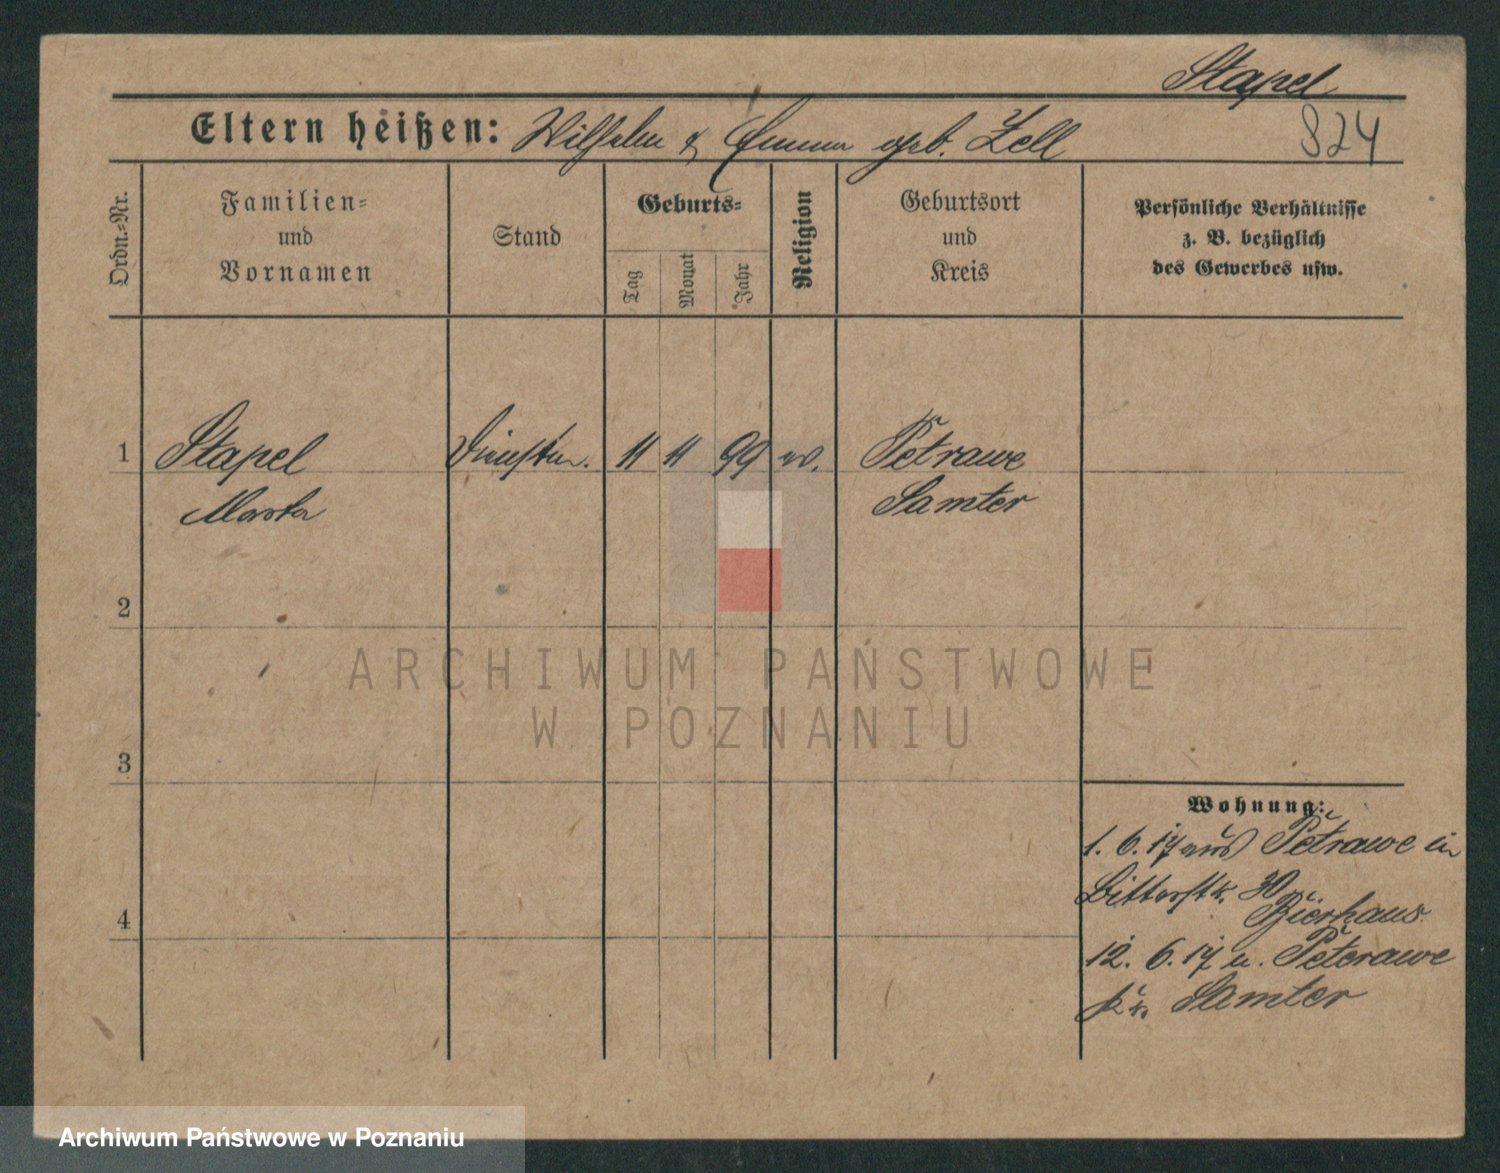 Stapel
Eltern heißen: Wilhelm & Emma geb. Zell
824
Ordn.-Nr.
Familien-
und
Vornamen
Stand
Geburts-
Tag
Monat
Jahr
Religion
Geburtsort
und
Kreis
Persönliche Verhältnisse
z. B. bezüglich
des Gewerbes usw.
1 Stapel 11 11 99 Petrawe
Samter
2
3
4
Wohnung:
1. 6. 17 aus Petrawe in
30
Bierhaus
12. 6. 17 n. Peterawe
Kr. Samter
ARCHIWUM PAŃSTWOWE
W POZNANIU
Archiwum Państwowe w Poznaniu